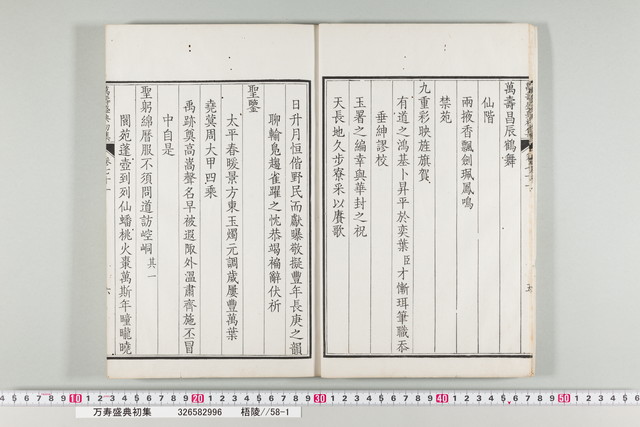 萬壽昌辰鶴舞
仙階
兩掖香飄劍珮鳳鳴
禁苑
九重彩映旌旗賀
有道之鴻基卜昇平於奕葉臣才慚珥筆職忝
垂紳謬校
玉署之編幸與華封之祝
天長地久步寮采以賡歌
日升月恒偕野民而獻曝敬擬豐年長庚之韻
聊輸鳧趨雀躍之忱恭竭褊辭伏祈
聖鑒
太平春暖景方東玉燭元調歲屢豐萬葉
堯蓂周大甲四乘
禹跡奠高嵩聲名早被遐陬外溫肅齊施丕冒
中自是
聖躬綿曆服不須問道訪崆峒 其一
閬苑蓬壺到列仙蟠桃火棗萬斯年曈曨曉
六
万寿盛典初集 326582996 梧陵//58-1